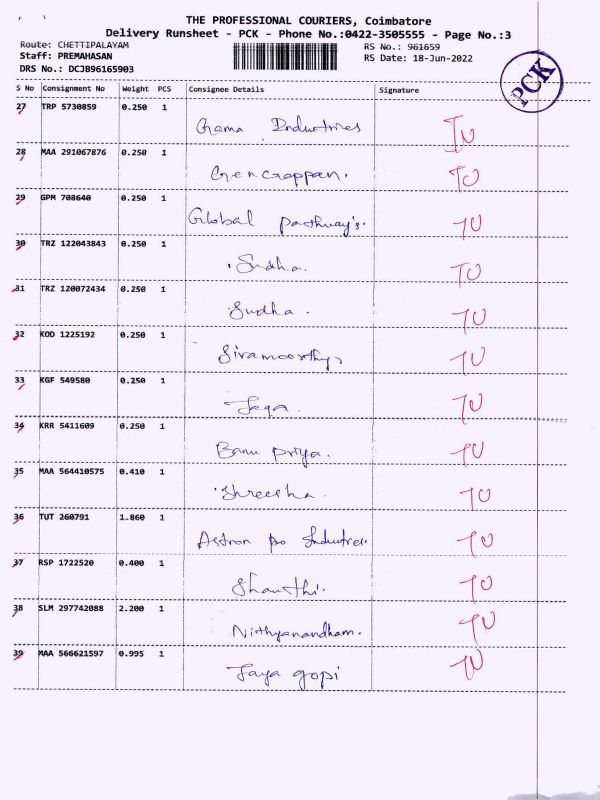 THE PROFESSIONAL COURIERS, Coimbatore
Delivery Runsheet - PCK - Phone No.:0422-3505555 - Page No.:3
Route: CHETTIPALAYAM RS No.: 961659
Staff: PREMAHASAN RS Date: 18-Jun-2022
DRS No.: DCJB96165903
PCK
S No Consignment No Weight PCS Consignee Details Signature
27 TRP 5730859 0.250 1
Gama Industries
28 MAA 291067876 0.250 1
TU
29 GPM 708640 0.250 1
Global pathway's. TU
30 TRZ 122043843 0.250 1
Sudha. TU
31 TRZ 120072434 0.250 1
Sudha. TU
32 KOD 1225192 0.250 1
Sivamoorthy TU
33 KGF 549580 0.250 1
Jaya. TU
34 KRR 5411609 0.250 1
Banu priya. TU
35 MAA 564410575 0.410 1
Shreesha. TU
36 TUT 260791 1.860 1
Astron TU
37 RSP 1722520 0.400 1
Shanthi. TU
38 SLM 297742088 2.200 1
Nithyanandham. TU
39 MAA 566621597 0.995 1
Jaya gopi TU